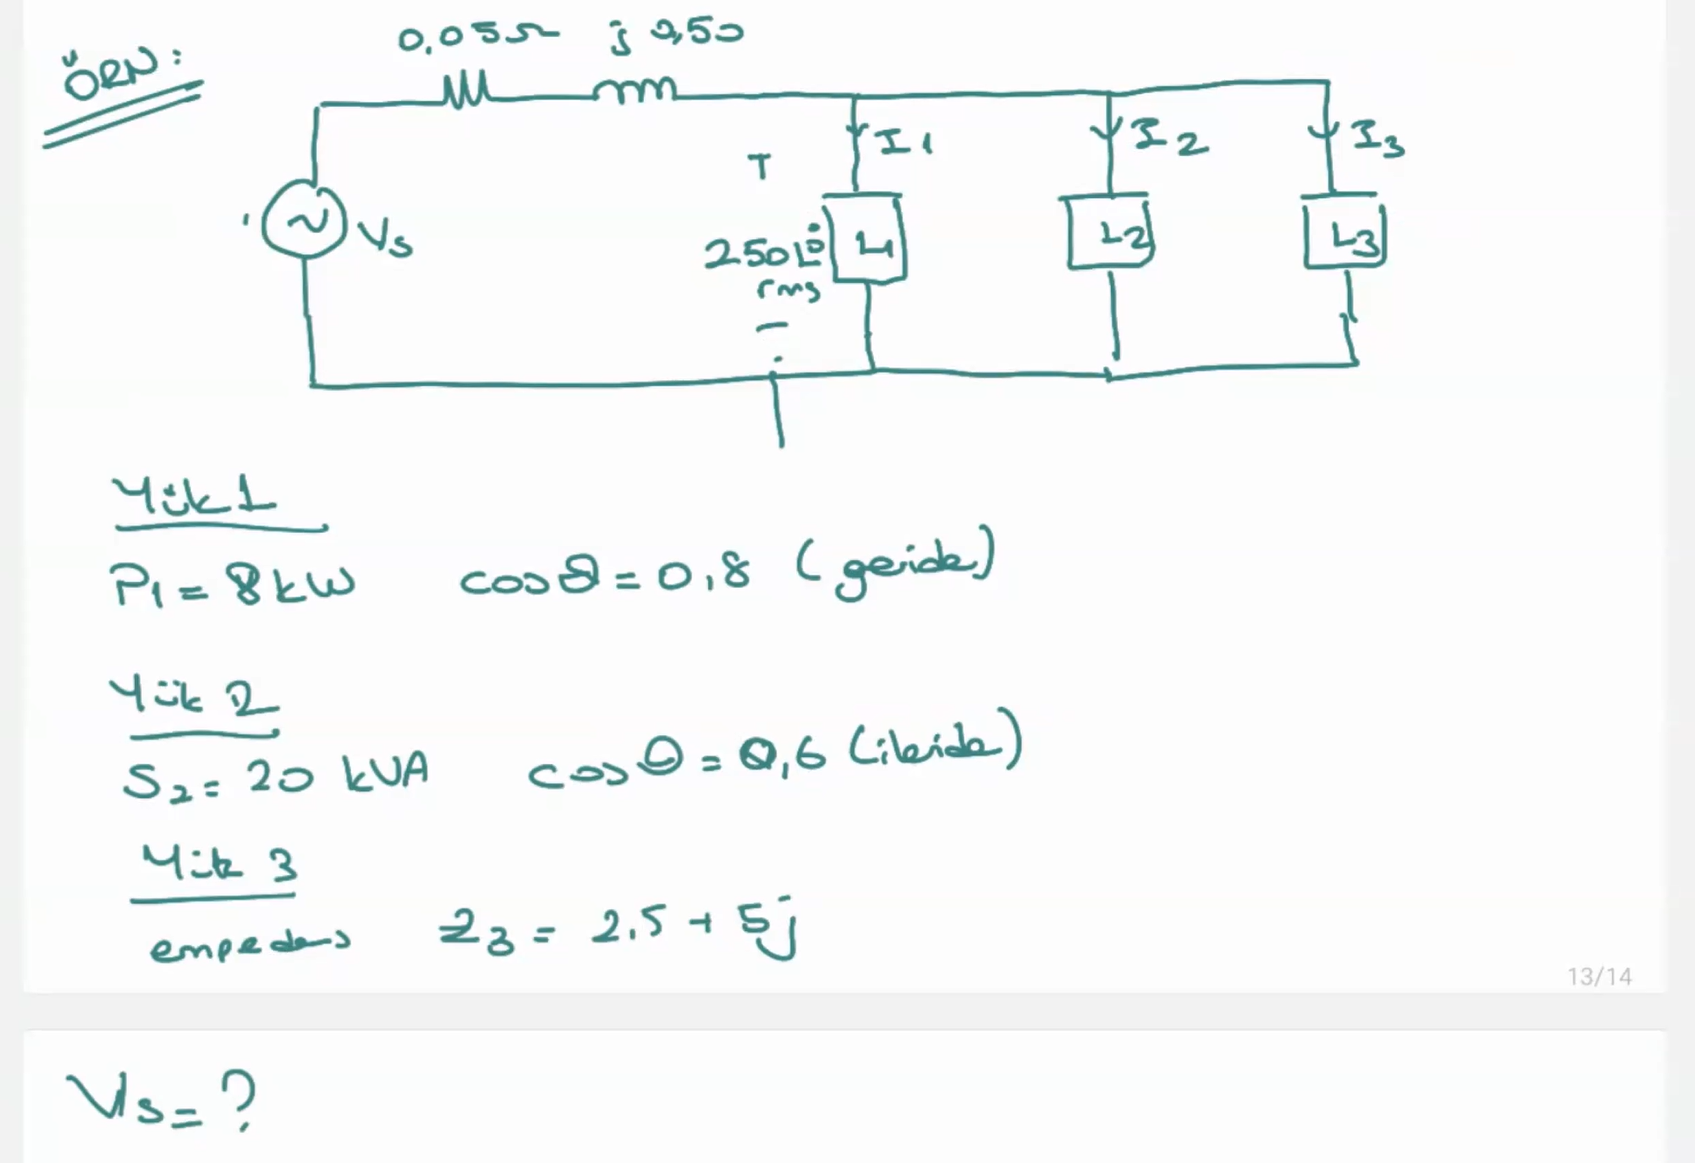 ÖRN:
0,05Ω j0,50
I1 I2 I3
+
Vs
250∠0° L1 L2 L3
rms
-
Yük 1
P1 = 8kW cosθ = 0,8 (geride)
Yük 2
S2 = 20 kVA cosθ = 0,6 (ileride)
Yük 3
empedans Z3 = 2,5 + 5j
13/14
Vs = ?